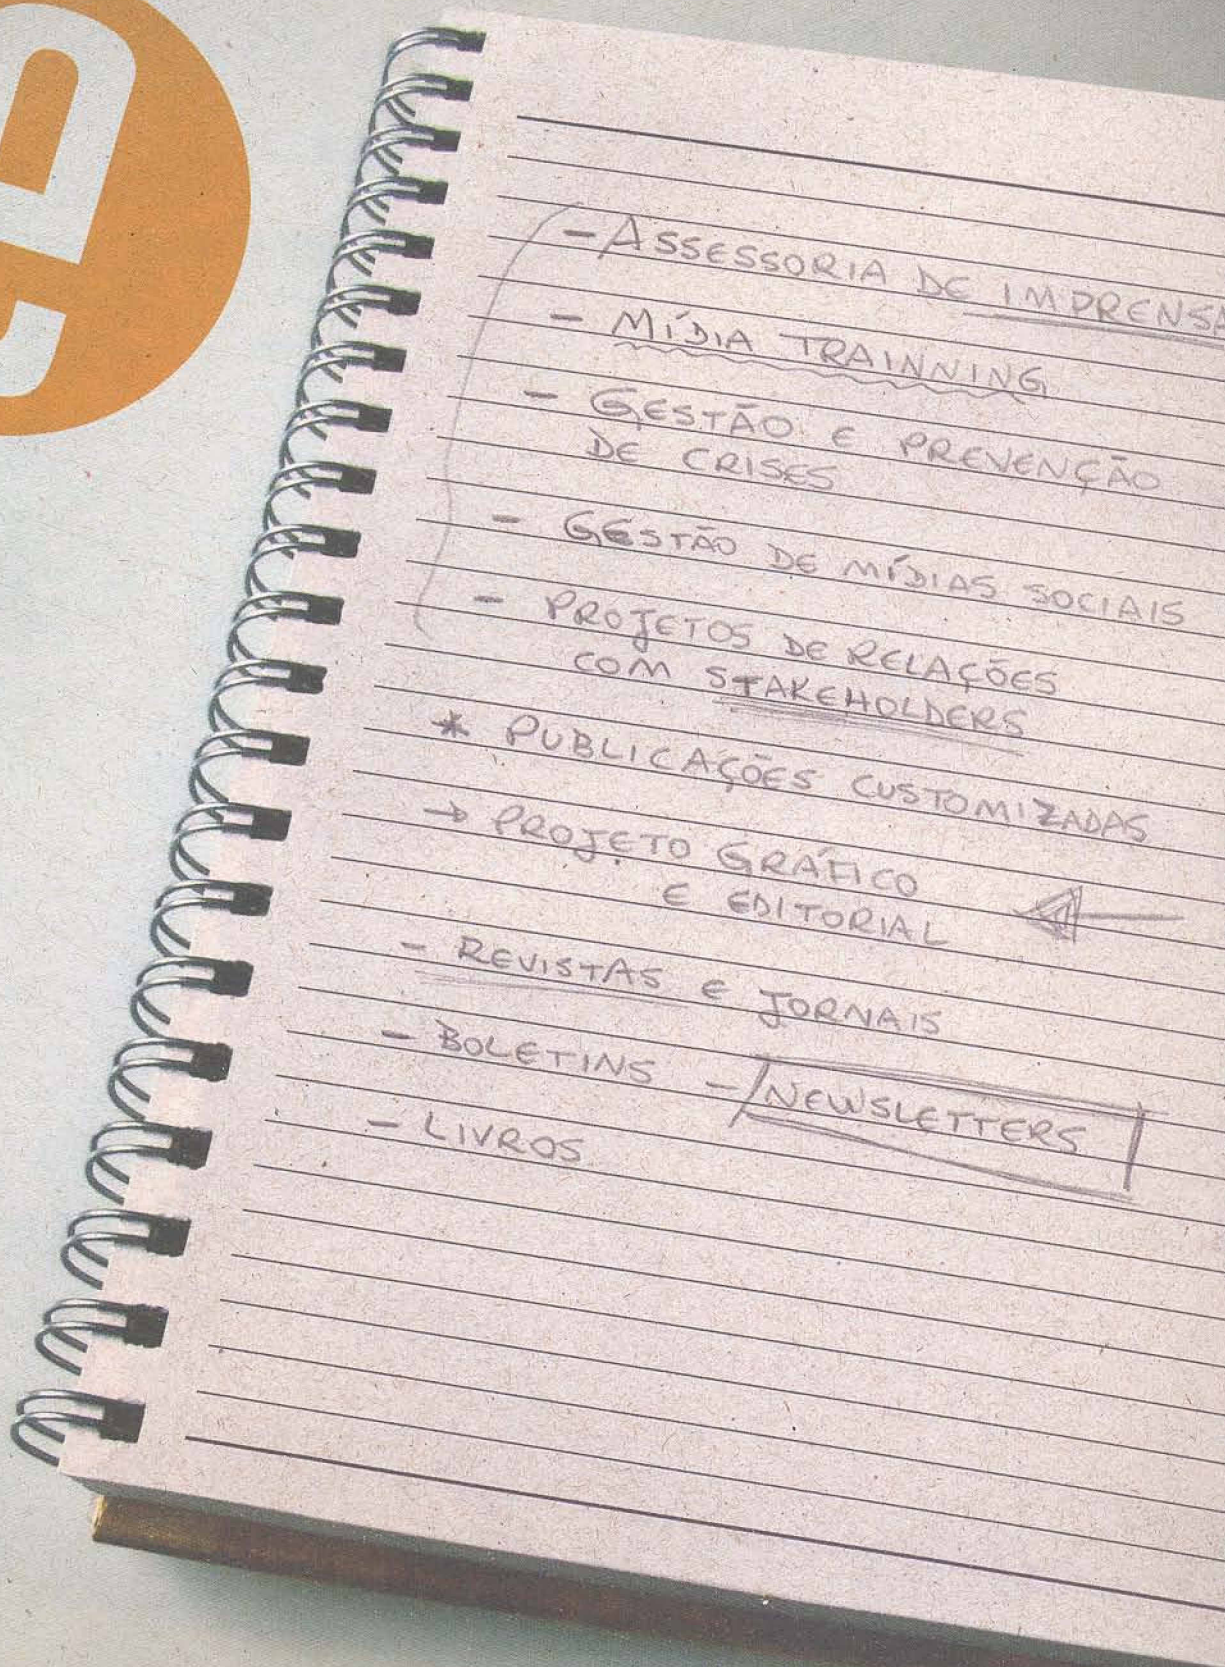 - ASSESSORIA DE IMPRENSA
- MÍDIA TRAINNING
- GESTÃO E PREVENÇÃO
DE CRISES
- GESTÃO DE MÍDIAS SOCIAIS
- PROJETOS DE RELAÇÕES
COM STAKEHOLDERS
* PUBLICAÇÕES CUSTOMIZADAS
→ PROJETO GRÁFICO
E EDITORIAL
- REVISTAS E JORNAIS
- BOLETINS - NEWSLETTERS
- LIVROS